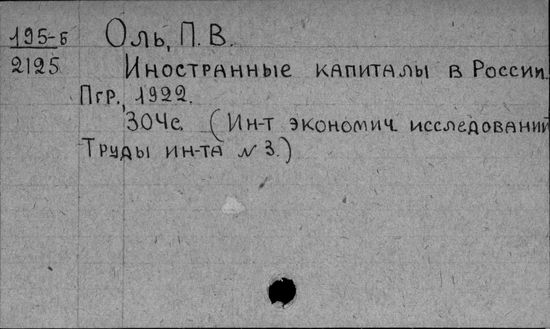 195-б Оль, П. В.
2125 Иностранные капиталы в России.
Пгр., 1922.
304с. (Ин-т экономич. исследований
Труды ин-та № 3.)